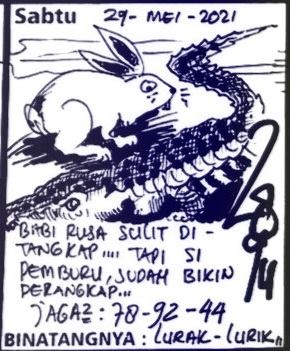 Sabtu 29- MEI -2021
BABI RUSA SULIT DI -
TANGKAP.... TAPI SI
PEMBURU, SUDAH BIKIN
PERANGKAP...
JAGA2 : 78-92-44
BINATANGNYA : LURAK-LURIK,,